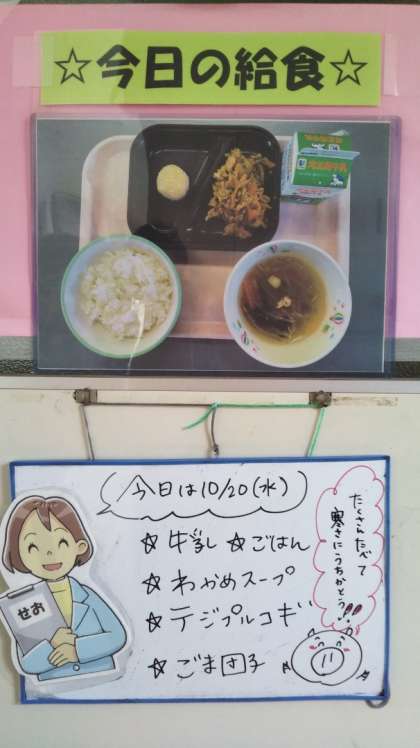 ☆今日の給食☆
今日は10/20(水)
☆牛乳 ☆ごはん
☆わかめスープ
☆テジプルコギ
☆ごま団子
たくさんたべて
寒さにうちかとう!!
せお